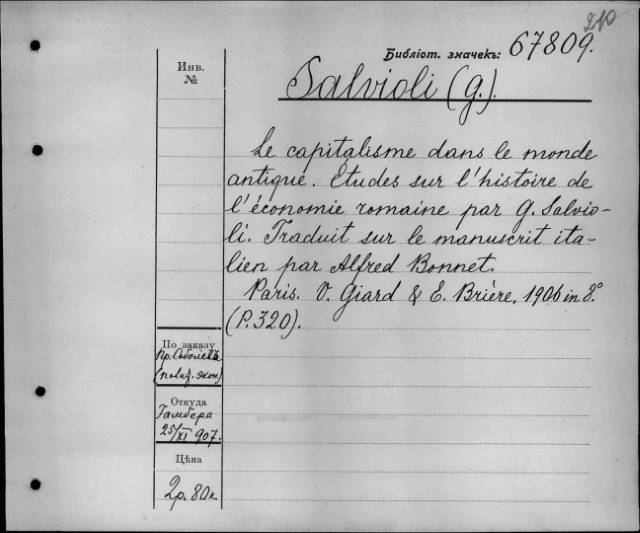 Библіот. значекъ: 67809.
Инв.
№
Salvioli (G.).
Le capitalisme dans le monde
antique. Études sur l'histoire de
l'économie romaine par G. Salvio-
li. Traduit sur le manuscrit ita-
lien par Alfred Bonnet.
Paris. V. Giard & E. Brière, 1906 in 8.°
(P. 320).
По заказу
Пр. Соболевъ
Откуда
Гамбера
25/XI 907.
Цѣна
2 р. 80 к.